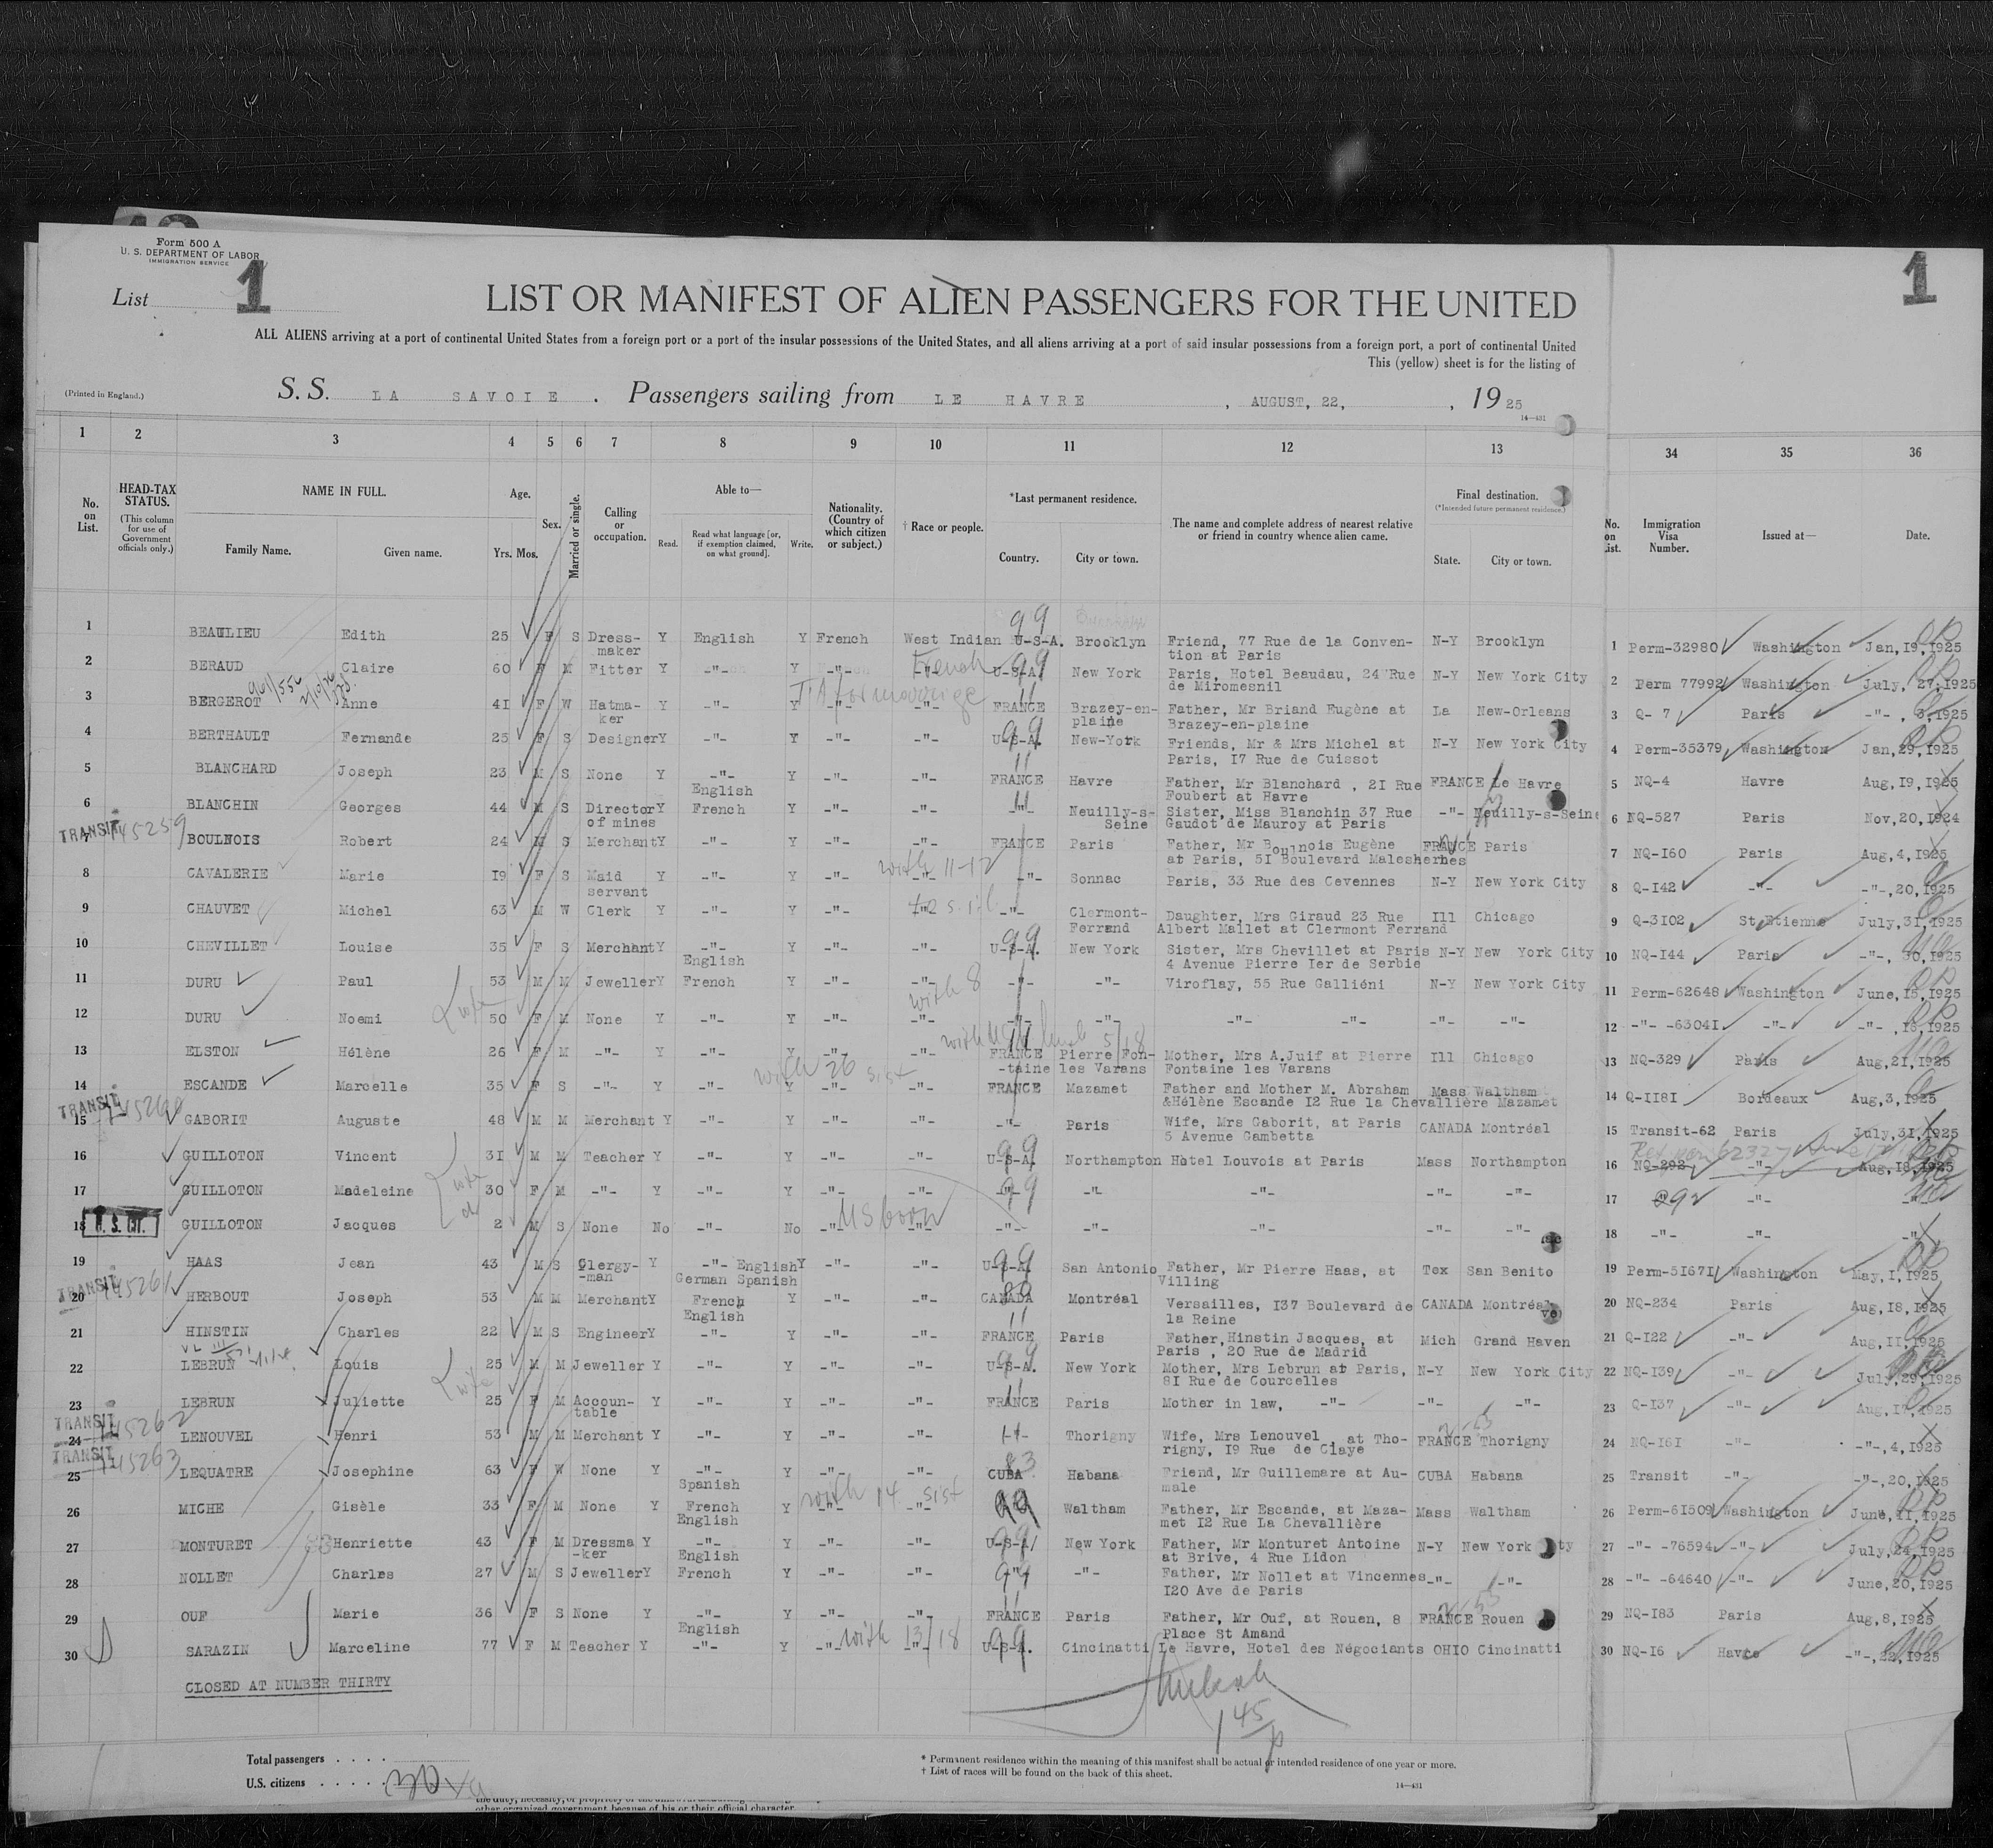 Form 500 A
U. S. DEPARTMENT OF LABOR
IMMIGRATION SERVICE
List 1
1
LIST OR MANIFEST OF ALIEN PASSENGERS FOR THE UNITED
ALL ALIENS arriving at a port of continental United States from a foreign port or a port of the insular possessions of the United States, and all aliens arriving at a port of said insular possessions from a foreign port, a port of continental United
This (yellow) sheet is for the listing of
(Printed in England.)
S. S. LA SAVOIE . Passengers sailing from LE HAVRE , AUGUST, 22, , 19 25
14—431
1 2 3 4 5 6 7 8 9 10 11 12 13 34 35 36
No. on List.
HEAD-TAX STATUS. (This column for use of Government officials only.)
NAME IN FULL. Family Name. Given name.
Age. Yrs. Mos.
Sex.
Married or single.
Calling or occupation.
Able to— Read. Read what language [or, if exemption claimed, on what ground]. Write.
Nationality. (Country of which citizen or subject.)
† Race or people.
*Last permanent residence. Country. City or town.
The name and complete address of nearest relative or friend in country whence alien came.
Final destination. (*Intended future permanent residence.) State. City or town.
No. on List.
Immigration Visa Number.
Issued at—
Date.
1 BEAULIEU Edith 25 F S Dress-maker Y English Y French West Indian U-S-A. Brooklyn Friend, 77 Rue de la Conven-tion at Paris N-Y Brooklyn 1 Perm-32980 Washington Jan,19,1925
2 BERAUD Claire 60 F M Fitter Y -"- Y -"- French U-S-A. New York Paris, Hotel Beaudau, 24 Rue de Miromesnil N-Y New York City 2 Perm 77992 Washington July, 27,1925
3 BERGEROT Anne 41 F W Hatma-ker Y -"- Y -"- -"- FRANCE Brazey-en-plaine Father, Mr Briand Eugène at Brazey-en-plaine La New-Orleans 3 Q- 7 Paris -"- , 3,1925
4 BERTHAULT Fernande 25 F S Designer Y -"- Y -"- -"- U-S-A. New-York Friends, Mr & Mrs Michel at Paris, 17 Rue de Cuissot N-Y New York City 4 Perm-35379 Washington Jan,29,1925
5 BLANCHARD Joseph 23 M S None Y -"- English Y -"- -"- FRANCE Havre Father, Mr Blanchard , 21 Rue Foubert at Havre FRANCE Le Havre 5 NQ-4 Havre Aug,19,1925
6 BLANCHIN Georges 44 M S Director of mines Y French Y -"- -"- -"- Neuilly-s-Seine Sister, Miss Blanchin 37 Rue Gaudot de Mauroy at Paris -"- Neuilly-s-Seine 6 NQ-527 Paris Nov,20,1924
TRANSIT 145259
7 BOULNOIS Robert 24 M S Merchant Y -"- Y -"- -"- FRANCE Paris Father, Mr Boulnois Eugène at Paris, 51 Boulevard Malesherbes FRANCE Paris 7 NQ-160 Paris Aug,4,1925
with 11-12
8 CAVALERIE Marie 19 F S Maid servant Y -"- Y -"- -"- -"- Sonnac Paris, 33 Rue des Cevennes N-Y New York City 8 Q-142 -"- -"-,20,1925
9 CHAUVET Michel 63 M W Clerk Y -"- Y -"- -"- -"- Clermont-Ferrand Daughter, Mrs Giraud 23 Rue Albert Mallet at Clermont Ferrand Ill Chicago 9 Q-3102 St Etienne July,31,1925
10 CHEVILLET Louise 35 F S Merchant Y -"- English Y -"- -"- U-S-A. New York Sister, Mrs Chevillet at Paris 4 Avenue Pierre Ier de Serbie N-Y New York City 10 NQ-144 Paris -"-, 30,1925
11 DURU Paul 53 M M Jeweller Y French Y -"- -"- -"- -"- Viroflay, 55 Rue Galliéni N-Y New York City 11 Perm-62648 Washington June,15,1925
wife with 8
12 DURU Noemi 50 F M None Y -"- Y -"- -"- -"- -"- -"- -"- -"- -"- 12 -"- -63041 -"- -"- ,18,1925
13 ELSTON Hélène 26 F M -"- Y -"- Y -"- -"- FRANCE Pierre Fon-taine les Varans Mother, Mrs A.Juif at Pierre Fontaine les Varans Ill Chicago 13 NQ-329 Paris Aug,21,1925
with 26 sist
14 ESCANDE Marcelle 35 F S -"- Y -"- Y -"- -"- FRANCE Mazamet Father and Mother M. Abraham &Hélène Escande 12 Rue la Chevallière Mazamet Mass Waltham 14 Q-1181 Bordeaux Aug,3,1925
TRANSIT 145260
15 GABORIT Auguste 48 M M Merchant Y -"- Y -"- -"- -"- Paris Wife, Mrs Gaborit, at Paris 5 Avenue Gambetta CANADA Montréal 15 Transit-62 Paris July,31,1925
16 GUILLOTON Vincent 31 M M Teacher Y -"- Y -"- -"- U-S-A. Northampton Hôtel Louvois at Paris Mass Northampton 16 NQ-292 -"- Aug,18,1925
wife
17 GUILLOTON Madeleine 30 F M -"- Y -"- Y -"- -"- -"- -"- -"- -"- -"- 17 292 -"- -"-
U. S. CIT.
18 GUILLOTON Jacques 2 M S None No -"- No -"- US born -"- -"- -"- -"- -"- -"- 18 -"- -"- -"-
19 HAAS Jean 43 M S Clergy-man Y -"- English German Spanish Y -"- -"- U-S-A. San Antonio Father, Mr Pierre Haas, at Villing Tex San Benito 19 Perm-51671 Washington May,1,1925
TRANSIT 145261
20 HERBOUT Joseph 53 M M Merchant Y French English Y -"- -"- CANADA Montréal Versailles, 137 Boulevard de la Reine CANADA Montréal 20 NQ-234 Paris Aug,18,1925
21 HINSTIN Charles 22 M S Engineer Y -"- Y -"- -"- FRANCE Paris Father,Hinstin Jacques, at Paris , 20 Rue de Madrid Mich Grand Haven 21 Q-122 -"- Aug,11,1925
22 LEBRUN Louis 25 M M Jeweller Y -"- Y -"- -"- U-S-A. New York Mother, Mrs Lebrun at Paris, 81 Rue de Courcelles N-Y New York City 22 NQ-139 -"- July,29,1925
wife
23 LEBRUN Juliette 25 F M Accoun-table Y -"- Y -"- -"- FRANCE Paris Mother in law, -"- -"- -"- 23 Q-137 -"- Aug,17,1925
TRANSIT 145262
24 LENOUVEL Henri 53 M M Merchant Y -"- Y -"- -"- Thorigny Wife, Mrs Lenouvel , at Tho-rigny, 19 Rue de Claye FRANCE Thorigny 24 NQ-161 -"- -"-,4,1925
TRANSIT 145263
25 LEQUATRE Josephine 63 F W None Y -"- Spanish Y -"- -"- CUBA Habana Friend, Mr Guillemare at Au-male CUBA Habana 25 Transit -"- -"-,20,1925
with 14 sist
26 MICHE Gisèle 33 F M None Y French English Y -"- -"- Waltham Father, Mr Escande, at Maza-met 12 Rue La Chevallière Mass Waltham 26 Perm-61509 Washington June,11,1925
27 MONTURET Henriette 43 F M Dressma-ker Y -"- English Y -"- -"- U-S-A. New York Father, Mr Monturet Antoine at Brive, 4 Rue Lidon N-Y New York City 27 -"- -76594 -"- July,24,1925
28 NOLLET Charles 27 M S Jeweller Y French Y -"- -"- -"- -"- Father, Mr Nollet at Vincennes 120 Ave de Paris -"- -"- 28 -"- -64640 -"- June,20,1925
29 OUF Marie 36 F S None Y -"- English Y -"- -"- FRANCE Paris Father, Mr Ouf, at Rouen, 8 Place St Amand FRANCE Rouen 29 NQ-183 Paris Aug,8,1925
with 13/18
30 SARAZIN Marceline 77 F M Teacher Y -"- Y -"- -"- U-S-A. Cincinatti Le Havre, Hotel des Négociants OHIO Cincinatti 30 NQ-16 Havre -"-,22,1925
CLOSED AT NUMBER THIRTY
1 45 p
Total passengers . . . .
U.S. citizens . . . . .
* Permanent residence within the meaning of this manifest shall be actual or intended residence of one year or more.
† List of races will be found on the back of this sheet.
14—431
other organized government because of his or their official character.